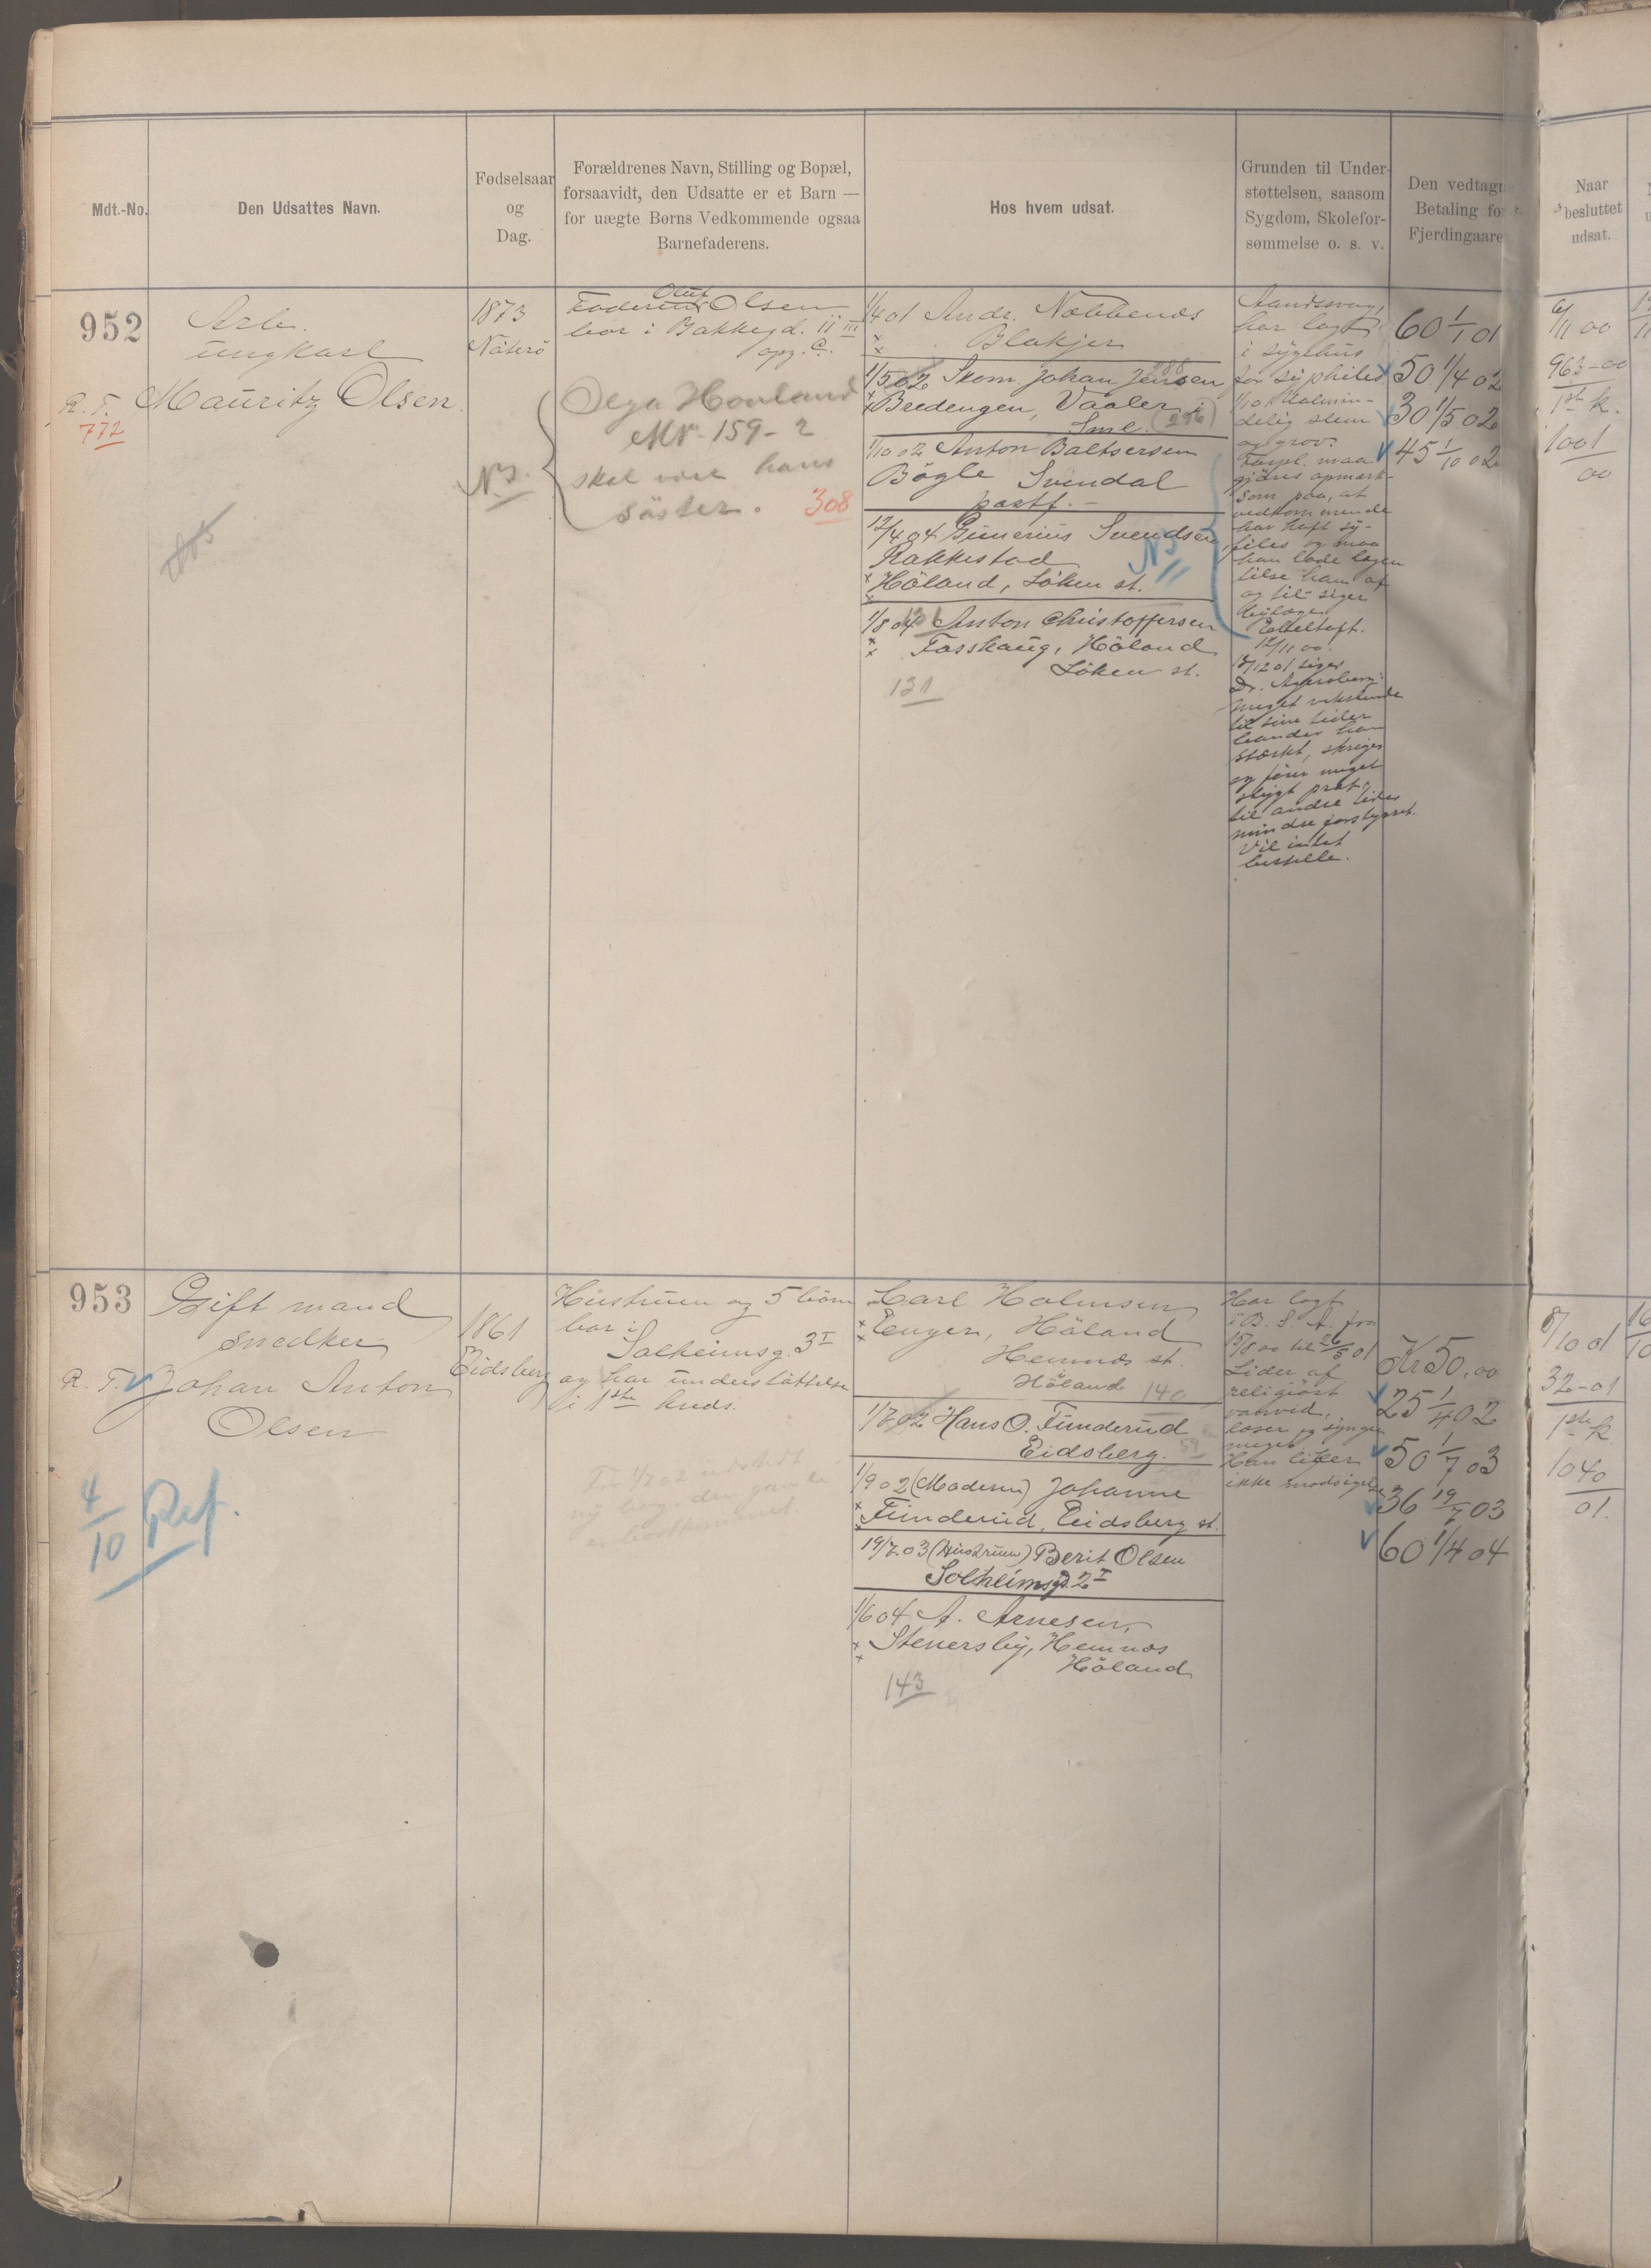 Mdt.-No.
Den Udsattes Navn.
Fødselsaar
og
Dag.
Forældrenes Navn, Stilling og Bopæl,
forsaavidt, den Udsatte er et Barn —
for uægte Børns Vedkommende ogsaa
Barnefaderens.
Hos hvem udsat.
Grunden til Under-
støttelsen, saasom
Sygdom, Skolefor-
sømmelse o. s. v.
Den vedtagne
Betaling for
Fjerdingaaret
Naar
besluttet
udsat.
952
Arb.
ungkarl
R. T. Mauritz Olsen
772
1873
Nøterø
Faderen Oluf Olsen
bor i Bakkegd. 11 III
opg. C.
NB.
Olga Hovland
MN 159-2
skal være hans
søster. 308
1/4 01 Andr. Nabbenes
Blakjer
1/5 02 Skom. Johan Jensen
Bredengen, Vaaler i
Sml. (296)
1/10 02 Anton Baltsersen
Bögle Svindal
postf.
12/4 04 Gunerius Svendsen
Rakkestad
Höland, Löken st.
NB
1/8 04 Anton Christoffersen
Fosshaug, Höland
Löken st.
131
Aandssvag,
har lagt
i sygehus
for syphilis
1/10 Ualmin-
delig slem
og grov.
Forpl. maa
gjöres opmærk-
som paa, at
vedkommende
har haft sy-
filis og maa
han lade lægen
tilse ham af
og til siger
Edeltoft.
12/11 00
18/12 01 siger
meget vekslende
til sine tider
bander han
stærkt, skriger
og fører meget
stygt prat,
til andre tider
mindre forstyrret.
Vil intet
bestille.
60 1/1 01
50 1/4 02
30 1/5 02
45 1/10 02
6/11 00
963-00
1ste k.
1001
00
953
Gift mand
snedker
R. T. Johan Anton
Olsen
4/10 Ref.
1861
Eidsberg
Hustruen og 5 börn
bor i
Solheimsg. 3 I
og har understöttelse
i 1ste kreds.
Carl Holmsen
Enger, Höland
Hemnes st.
Höland 140
1/7 02 Hans O. Funderud
Eidsberg. 59
1/9 02 (Moderen) Johanne
Funderud, Eidsberg st.
19/7 03 (Hustruen) Berit Olsen
Solheimsgd. 2 I
1/6 04 A. Arnesen,
Stenersby, Hemnes
Höland
143
Har lagt
i B. S. A. fra
15/8 00 til 26/8 01
Lider af
religiøst
vanvid,
læser og synger
meget
Han liker
ikke modsigelse
Kr 50,00
25 1/4 02
50 1/7 03
36 19/7 03
60 1/4 04
8/10 01
32-01
1ste k.
1040
01.